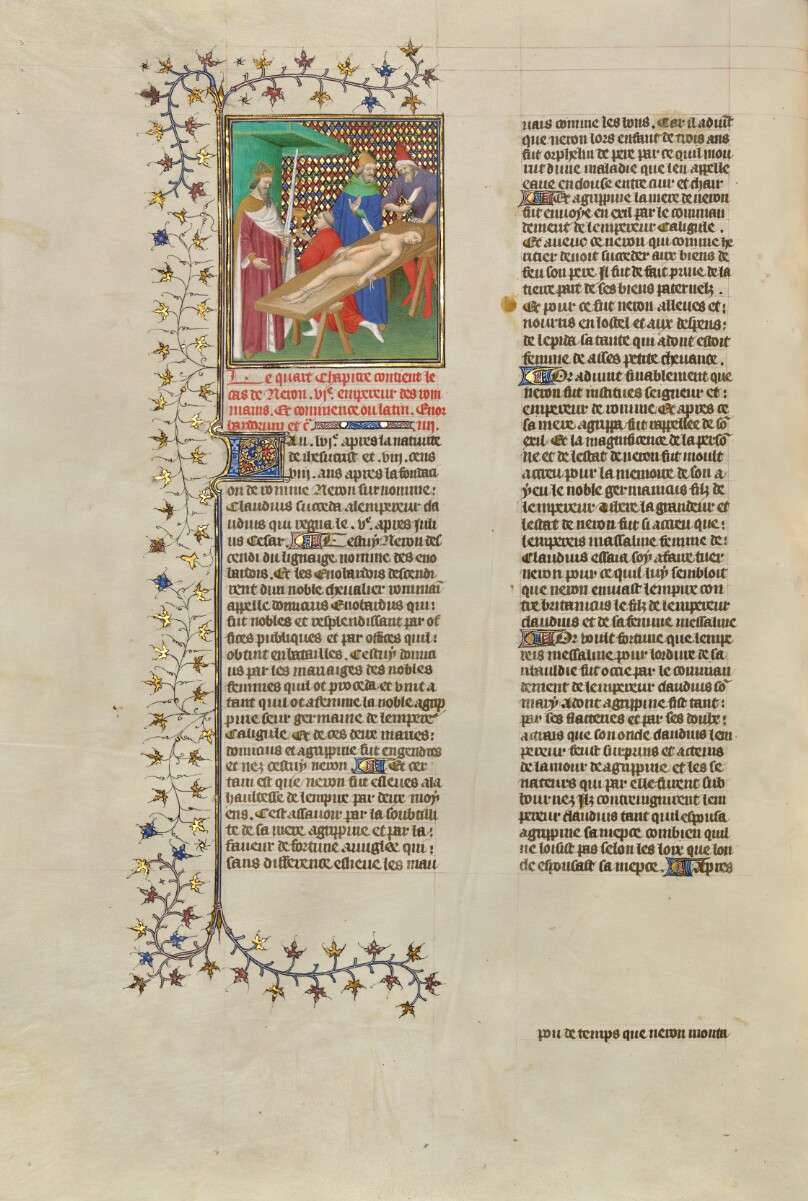 Le quart Chapitre contient le
cas de Neron .vjᵉ. empereur des rom
mains. Et commence ou latin. Enor
bardorum et cͣ. iiij.
An .lvjᵉ. apres la natiuite
de ihesucrist et .viij. cens
viij. ans apres la fondaci
on de romme Neron surnomme:
Claudius succeda alempereur cla
udius qui regna le .vᵉ. apres Juli
us Cesar. Cestuy Neron des
cendi du lignaige nomme des eno
bardois. Et les Enobardois descendi
rent dun noble cheualier rommaī
appelle domicius Enobardus qui:
fut nobles et resplendissant par of
fices publiques et par offices quil:
obtint en batailles. Cestuy domici
us par les mariaiges des nobles
femmes quil ot proceda et vint a
tant quil ot a femme la noble agrip
pine seur germaine de lempereʳ
Caligule Et de ces deux mariés:
domicius et agrippine fut engendres
et nez cestuy neron Et cer
tain est que neron fut esleues a la
haultesse de lempire par deux moy
ens. Cest assauoir par la soubtilli
te de sa mere agrippine et par la:
faueur de fortune auuglee qui:
sans difference eslieue les mau
uais comme les bons. Car il aduīt
que neron lors enfant de trois ans
fut orphelin de pere par ce quil mou
rut dune maladie que len appelle
eaue enclouse entre cuir et chair
Et agrippine la mere de neron
fut enuoye en exil par le comman
dement de lempereur Caligule .
Et auecques ce neron qui comme he
ritier deuoit succeder aux biens de
feu son pere. Il fut de fait priue de la
tierce part de ses biens paternelz .
Et pour ce fut neron alleues et:
nourris en lostel et aux despens:
de lepida sa tante qui adont estoit
femme de asses petite cheuance.
Or aduint finablement que
neron fut institues seigneur et:
empereur de romme Et apres ce
sa mere agrippa fut rappellee de sō
exil Et la magnificence de la persō
ne et de lestat de neron fut moult
acreu pour la memoire de son a
yeu le noble germanicus filz de
lempereur Tibere la grandeur et
lestat de neron fut si acreu que:
lempereis messaline femme de:
Claudius essaia soy a faire tuer
neron pour ce quil luy sembloit
que neron enuiast lempire con
tre britanicus le filz de lempereur
claudius et de sa femme messaline
Or voult fortune que lempe
reis messaline pour lordure de sa
ribauldie fut occie par le comman
dement de lempereur claudius sō
mary adont agrippine fist tant:
par ses flateries et par ses doulx:
attrais que son oncle claudius lem
pereur feust surpruis et actains
de lamour de agrippine et les se
nateurs qui par elle furent sub
bournez Ilz contraignirent lem
pereur claudius tant quil espousa
agrippine sa niepce combien quil
ne loisist pas selon les loix que lon
cle espousast sa niepce. Apres
pou de temps que neron monta